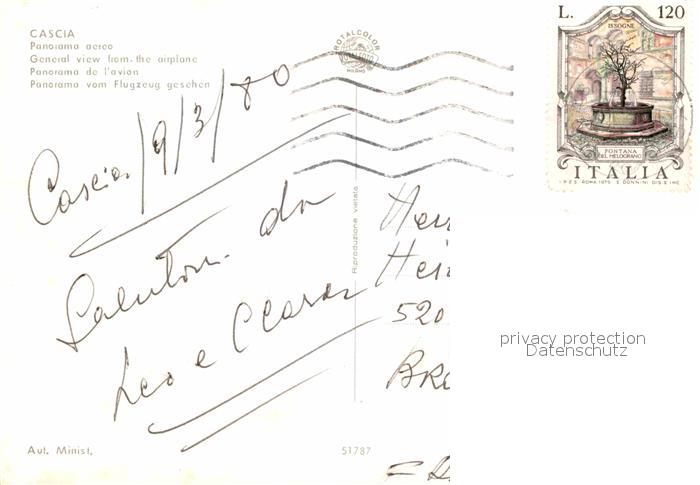 CASCIA
Panorama aereo
General view from the airplane
Panorama de l'avion
Panorama vom Flugzeug gesehen
ROTALCOLOR
MILANO
L. 120
ISSOGNE
FONTANA
DEL MELOGRANO
ITALIA
I.P.Z.S. ROMA 1976 E. DONNINI DIS. E INC.
Cascia, 19/3/80
Saluton da
Leo e Clara
Riproduzione vietata
Her
Hei
520
BR
privacy protection
Datenschutz
Aut. Minist.
51787